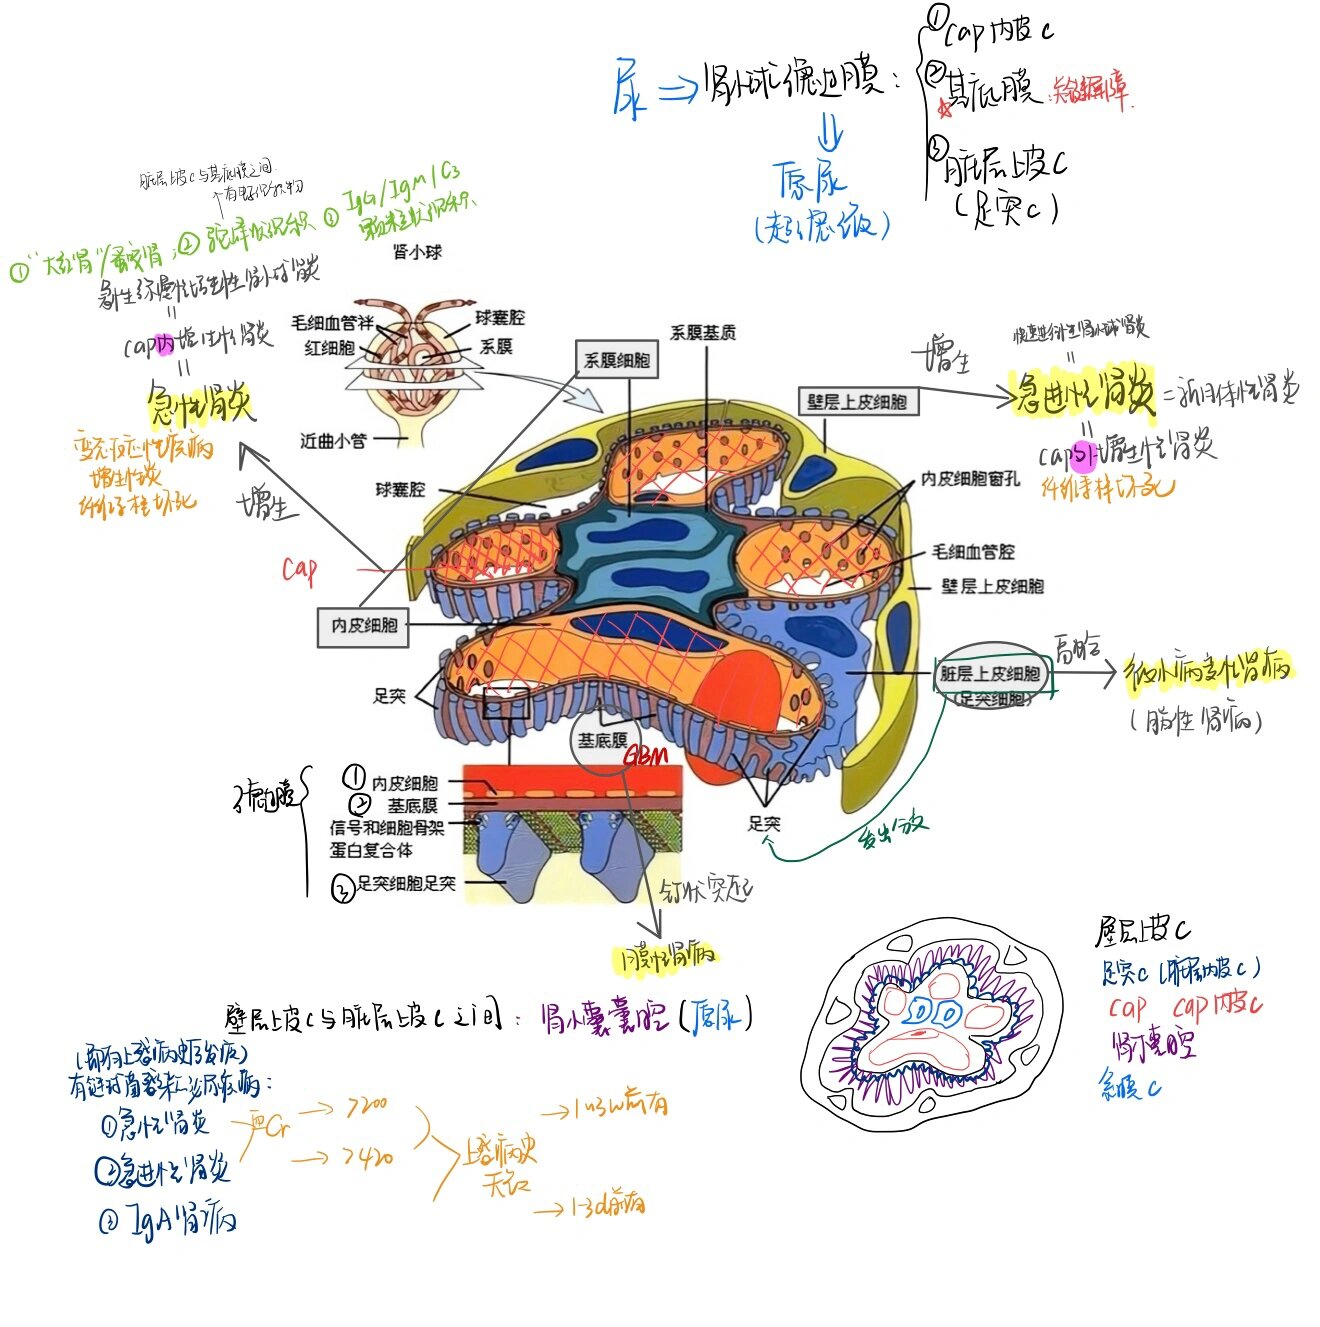 ①cap内皮c
尿⇒肾小球滤过膜：
②基底膜：
③脏层上皮c
(足突c)
原尿
(超滤液)
脏层上皮c与基底膜之间
①"大红肾"/蚤咬肾；②驼峰状沉积、③IgG/IgM/C3
颗粒状沉积、
肾小球
毛细血管袢
红细胞
球囊腔
系膜
近曲小管
系膜细胞
系膜基质
cap内增生性肾炎
=
急性肾炎
变态反应性疾病
增生性炎
纤维素样坏死
增生
cap
增生
快速进行性肾小球肾炎
=
急进性肾炎=新月体性肾炎
=
cap外增生性肾炎
纤维素样坏死
壁层上皮细胞
球囊腔
内皮细胞窗孔
毛细血管腔
壁层上皮细胞
内皮细胞
足突
脏层上皮细胞
(足突细胞)
微小病变性肾病
(脂性肾病)
基底膜
GBM
滤过膜
①内皮细胞
②基底膜
信号和细胞骨架
蛋白复合体
③足突细胞足突
足突
发出分支
钉状突起
膜性肾病
壁层上皮c与脏层上皮c之间：肾小囊囊腔(原尿)
壁层上皮c
足突c(脏层内皮c)
cap cap内皮c
肾小囊腔
系膜c
有链球菌感染
①急性肾炎
②急进性肾炎
③IgA肾病
血Cr
→ >200
→ >420
上感病史
→1~3w前有
→1-3d前有